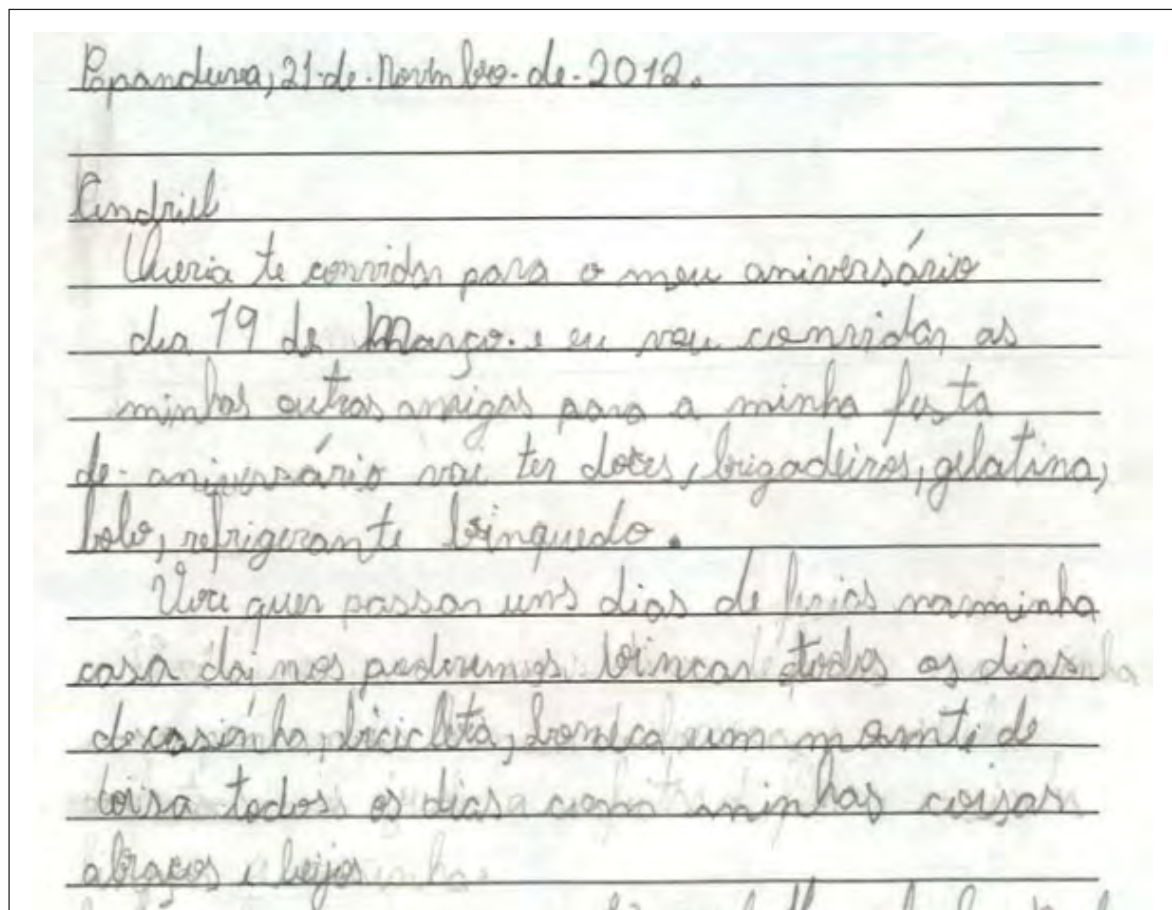 Papanduva, 21 de. Novembro. de. 2012.
Andriel
Queria te convidar para o meu aniversário
dia 19 de Março. e eu vou convidar as
minhas outras amigas para a minha festa
de aniversário vai ter doces, brigadeiros, gelatina,
bolo, refrigerante brinquedo.
Você quer passar uns dias de ferias na minha
casa dai nos poderemos brincar todos os dias
de casinha, bicicleta, boneca um monte de
coisa todos os dias com minhas coisas
abraços e beijos